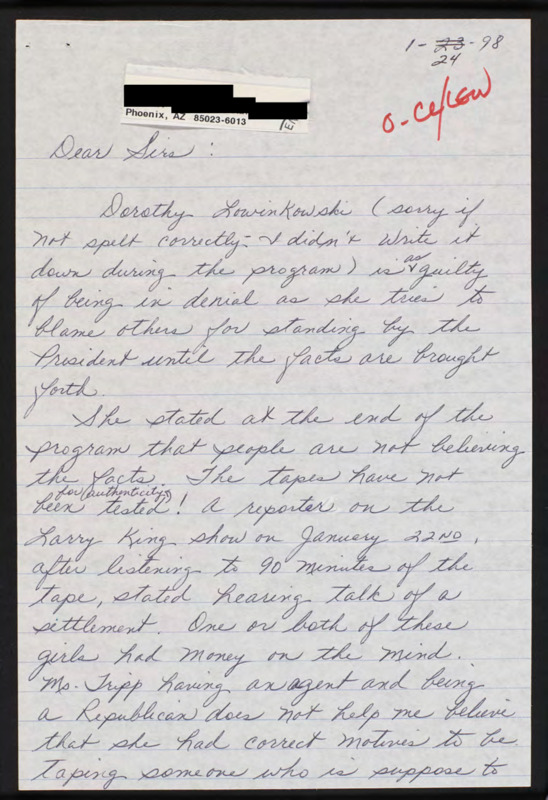 1-23-98
24
Phoenix, AZ 85023-6013
Dear Sirs:
Dorothy Lowinkowski (sorry if
not spelt correctly - I didn't write it
down during the program) is as guilty
of being in denial as she tries to
blame others for standing by the
President until the facts are brought
forth.
She stated at the end of the
program that people are not believing
the facts. The tapes have not
been tested (for authenticity)! A reporter on the
Larry King show on January 22ND,
after listening to 90 minutes of the
tape, stated hearing talk of a
settlement. One or both of these
girls had money on the mind.
Ms. Tripp having an agent and being
a Republican does not help me believe
that she had correct motives to be
taping someone who is suppose to